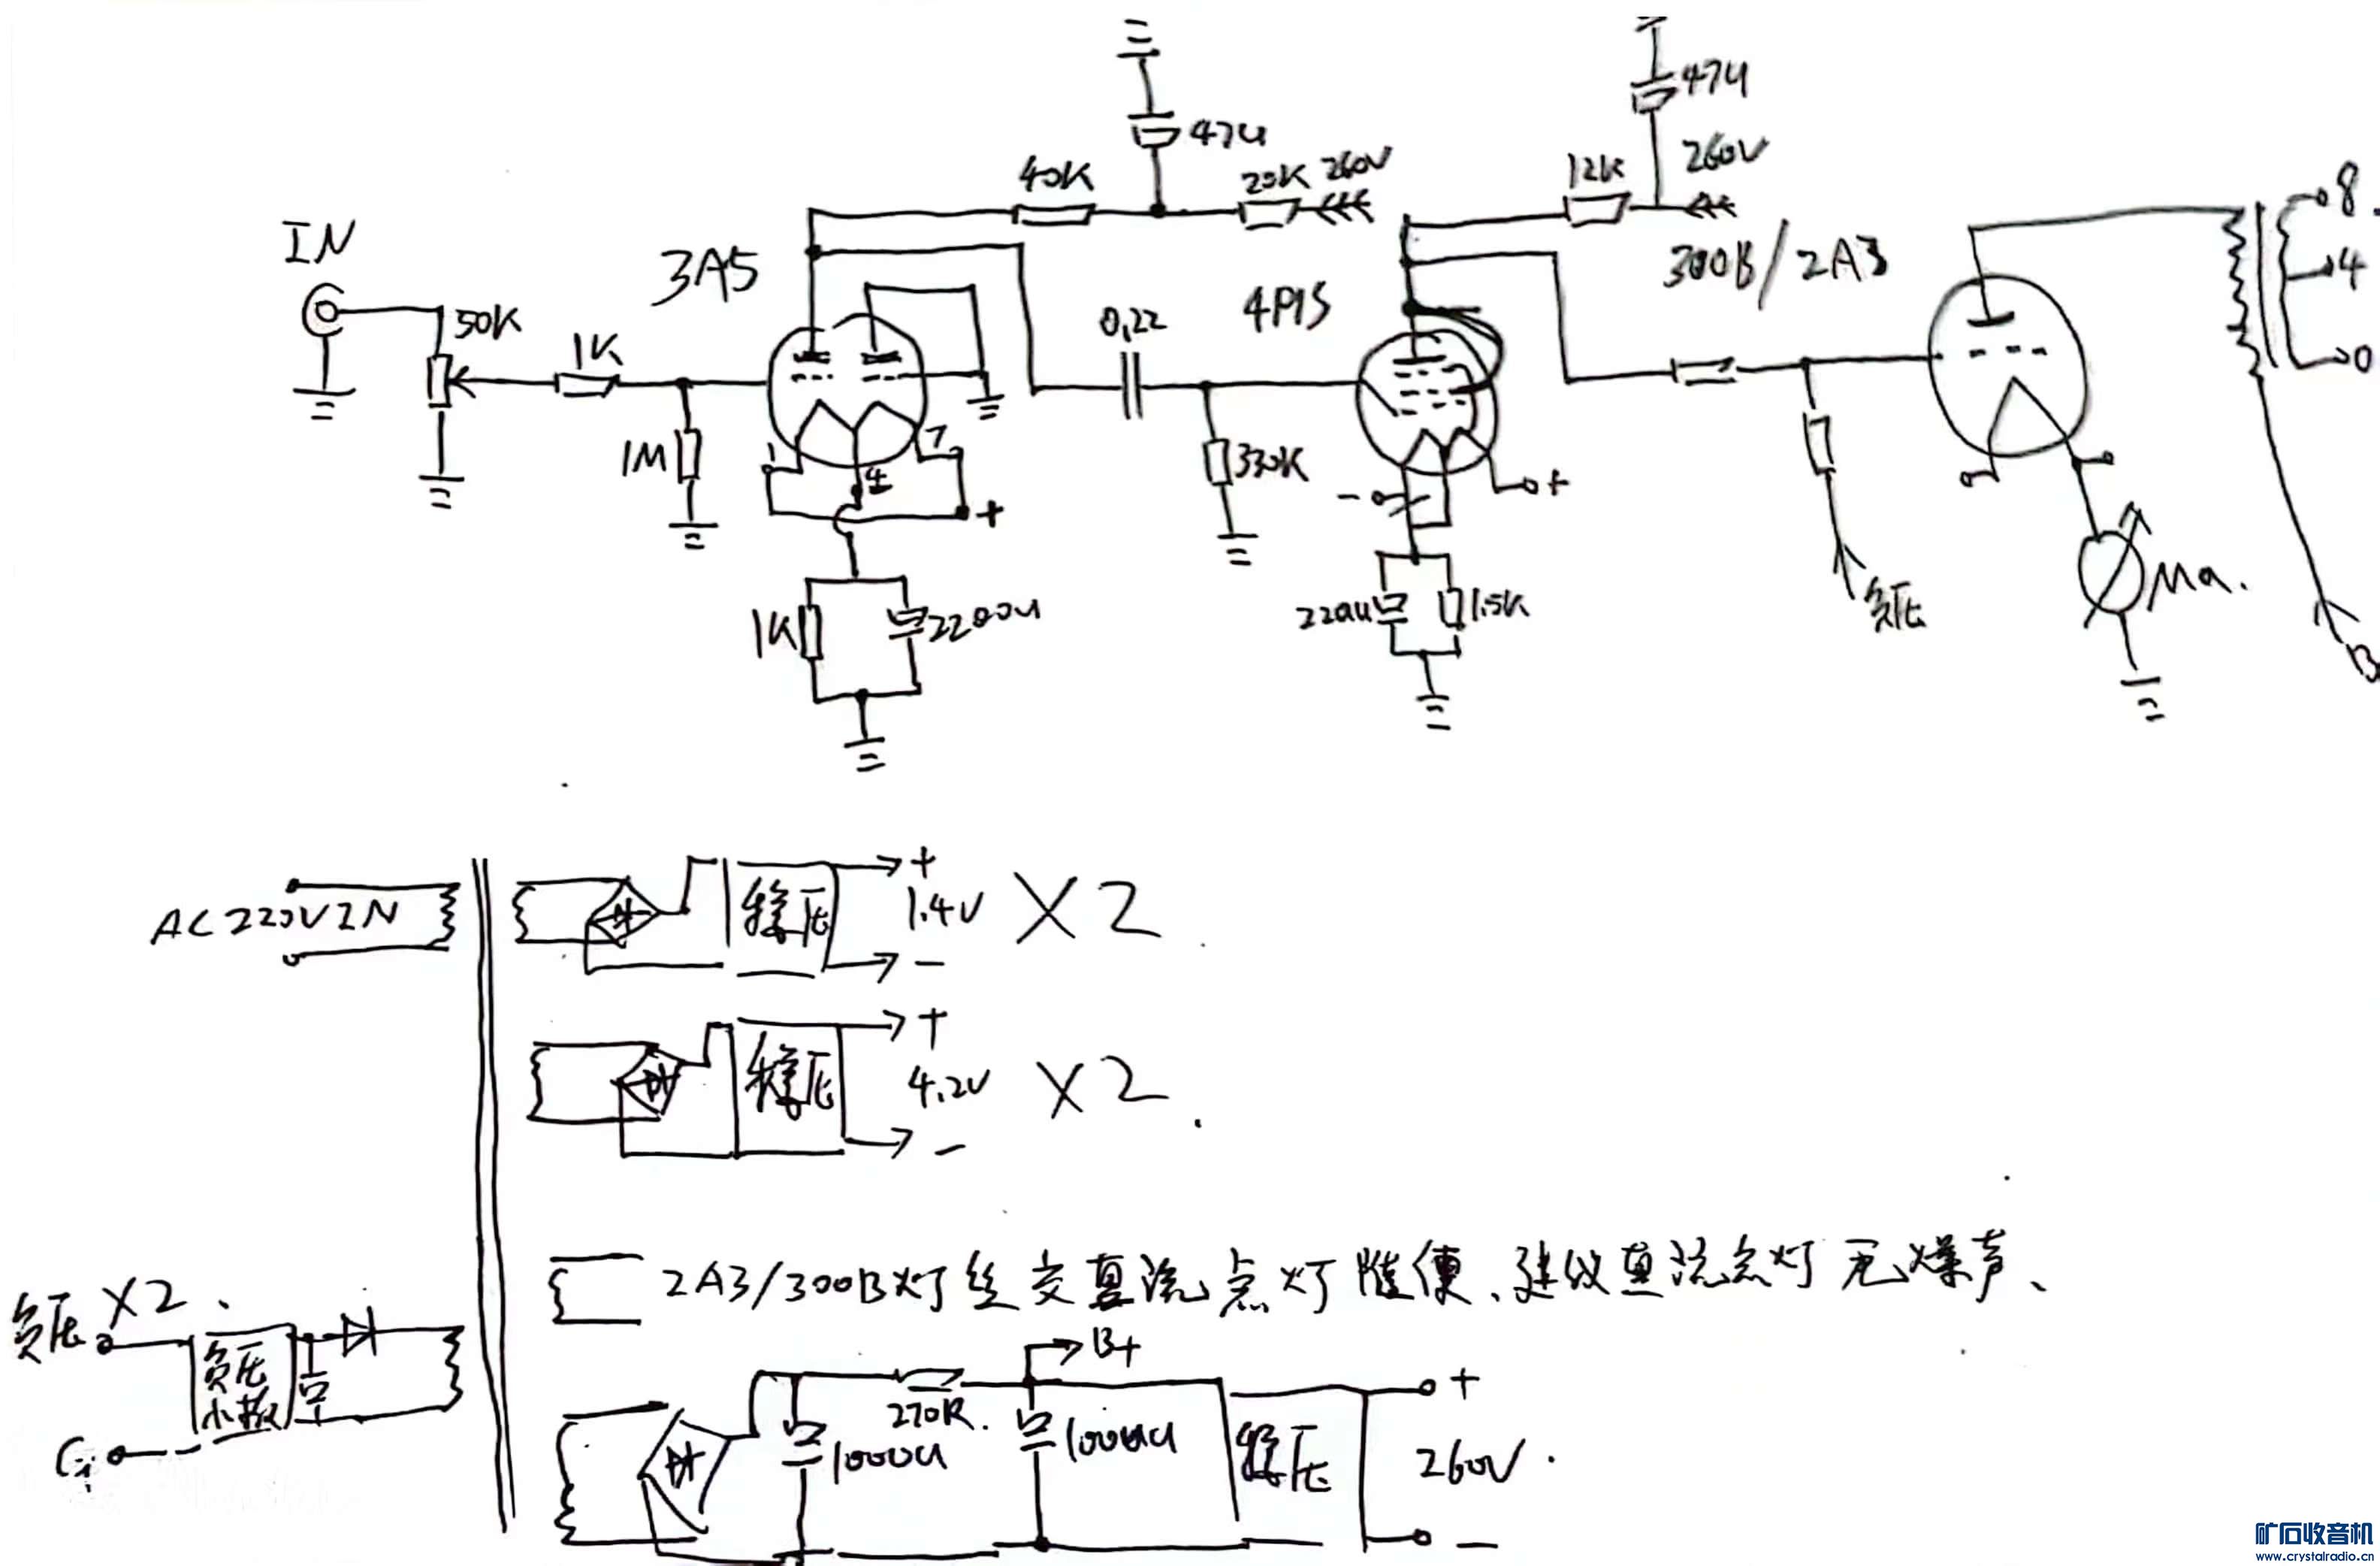 47U
47U
40K
20K 260V
12K
260V
8.
4
0
IN
3A5
4P1S
300B/2A3
50K
1K
0.22
1M
1
4
7
+
330K
-
+
1K
2200U
220U
1.5K
负压
Ma.
B
AC220VIN
稳压
+
1.4V
-
X2
稳压
+
4.2V
-
X2
2A3/300B灯丝交直流点灯随便、建议直流点灯无燥声、
负压 X2
负压
小板
G
1000U
270R
B+
1000U
稳压
+
260V
-
矿石收音机
www.crystalradio.cn